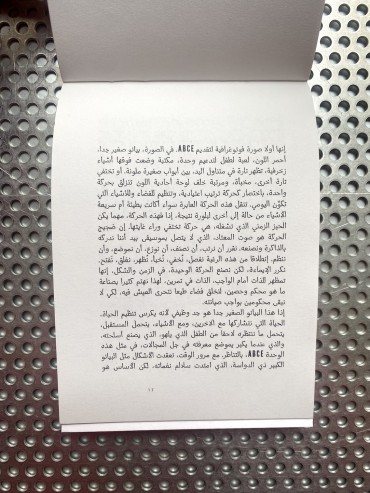 إنها أولا صورة فوتوغرافية لتقديم ABCE. في الصورة، بيانو صغير جدا،
أحمر اللون، لعبة لطفل لتدعيم وحدة، مكتبة وضعت فوقها أشياء
زخرفية، تظهر تارة في متناول اليد، بين أبواب صغيرة ملونة. أو تختفي
تارة أخرى، مخبأة، ومرتبة خلف لوحة أحادية اللون تنزلق بحركة
واحدة، باختصار كحركة ترتيب اعتيادية، وتنظيم للفضاء وللأشياء التي
تكوّن اليومي. تنقل هذه الحركة العابرة سواء أكانت بطيئة أم سريعة
الأشياء من حالة إلى أخرى لبلورة نتيجة، إذا فهذه الحركة، مهما يكن
الحيز الزمني الذي تشغله، هي حركة تختفي وراء غايتها. إن ضجيج
الحركة هو صوت المعتاد، الذي لا يتصل بموسيقى بيد أننا ندركه
بالذاكرة ونصنعه. نقرر أن نرتب، أن نصنف، أن نوزع، أن نموضع، وأن
ننظم. إنطلاقا من هذه الرغبة نفصل، نُخفي، نُخبأ، نُظهر، نغلق، نَفتح.
نكرر الإيماءة، لكن نصنع الحركة الوحيدة، في الزمن والشكل، إنها
تمظهر الذات أمام الواجب، الذات في تمرين. لهذا نهتم كثيرا بصناعة
ما هو محكم وحصين، لنخلق فضاء طيعا نتحرى العيش فيه، لكي لا
نبقى محكومين بواجب صيانته.
إذا هذا البيانو الصغير جدا هو جد وظيفي لأنه يكرس تنظيم الحياة،
الحياة التي نتشاركها مع الآخرين، ومع الأشياء، يتحمل المستقبل،
يتحمل ما ننتظره لاحقا من الطفل الذي يلهو، الذي يصنع أسلحته،
والذي عندما يكبر يموضع معرفته في جل المجالات، في مثل هذه
الوحدة ABCE. بالتناظر، مع مرور الوقت، تعقدت الأشكال مثل البيانو
الكبير ذي الدواسة، الذي امتدت سلالم نغماته، لكن الأساس هو